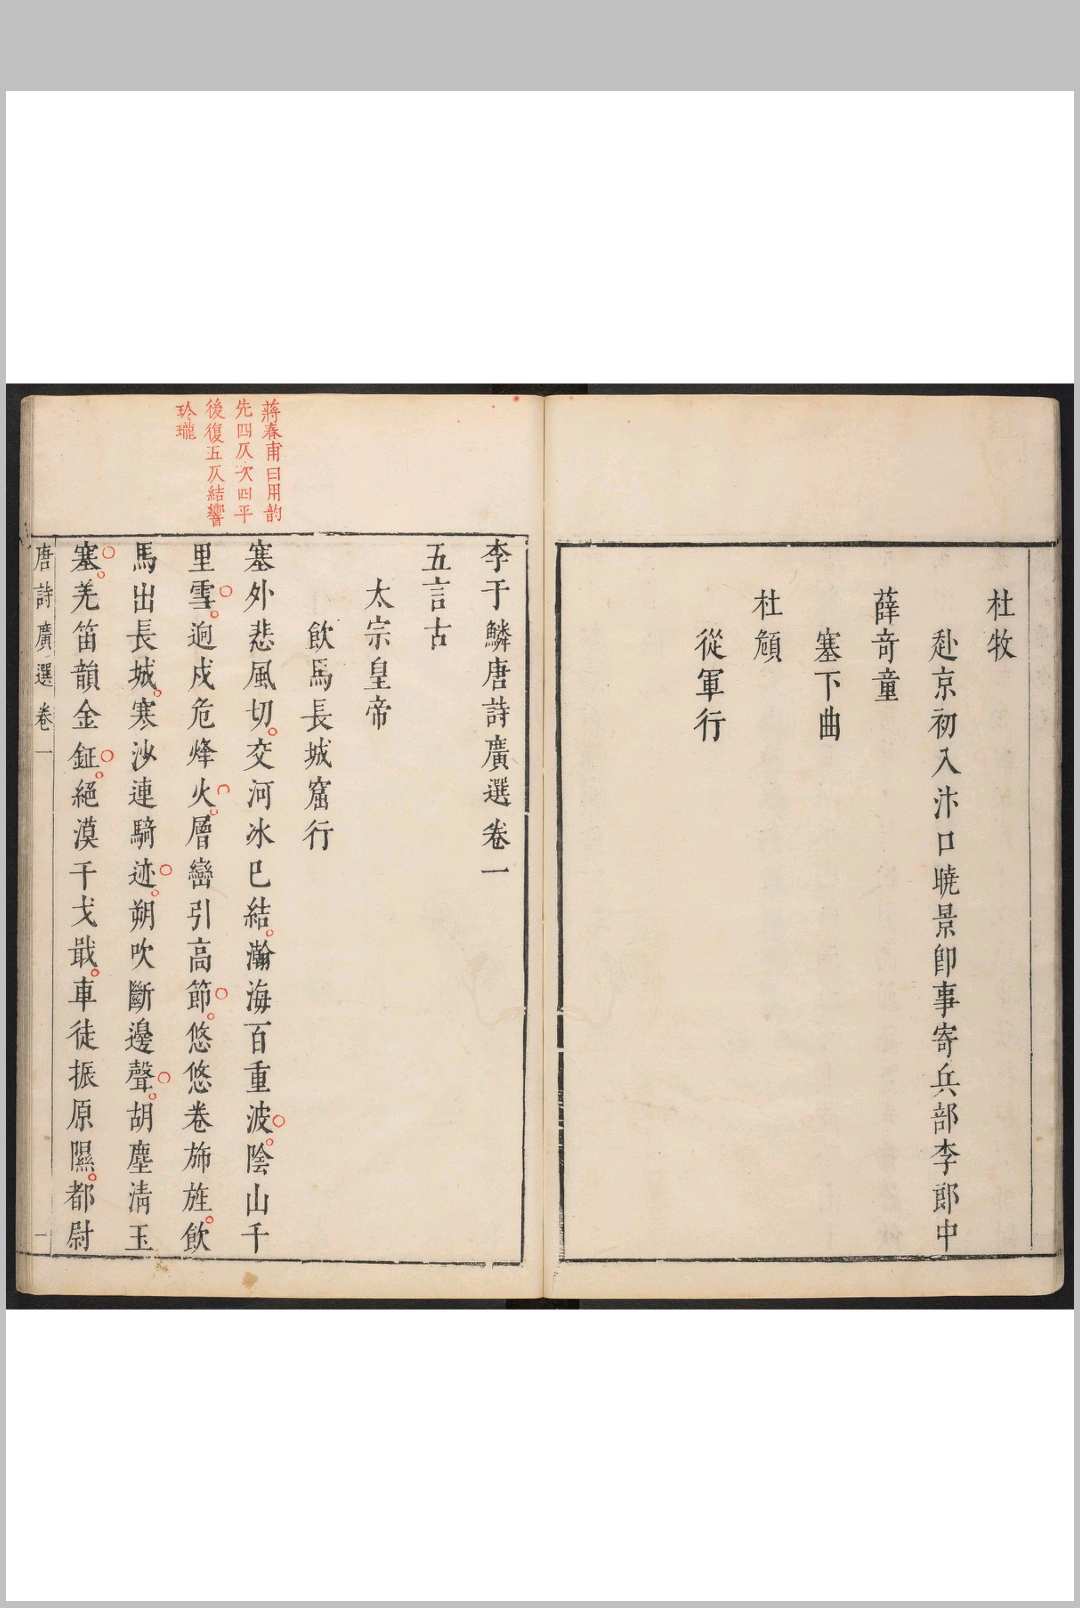 杜牧
赴京初入汴口曉景卽事寄兵部李郎中
薛奇童
塞下曲
杜頠
從軍行
蔣春甫曰用韵
先四仄次四平
後復五仄結響
玲瓏
李于鱗唐詩廣選卷一
五言古
太宗皇帝
飲馬長城窟行
塞外悲風切交河冰已結瀚海百重波陰山千
里雪逈戍危烽火層巒引高節悠悠卷斾旌飲
馬出長城寒沙連騎迹朔吹斷邊聲胡塵清玉
塞羌笛韻金鉦絕漠干戈戢車徒振原隰都尉
唐詩廣選卷一
一